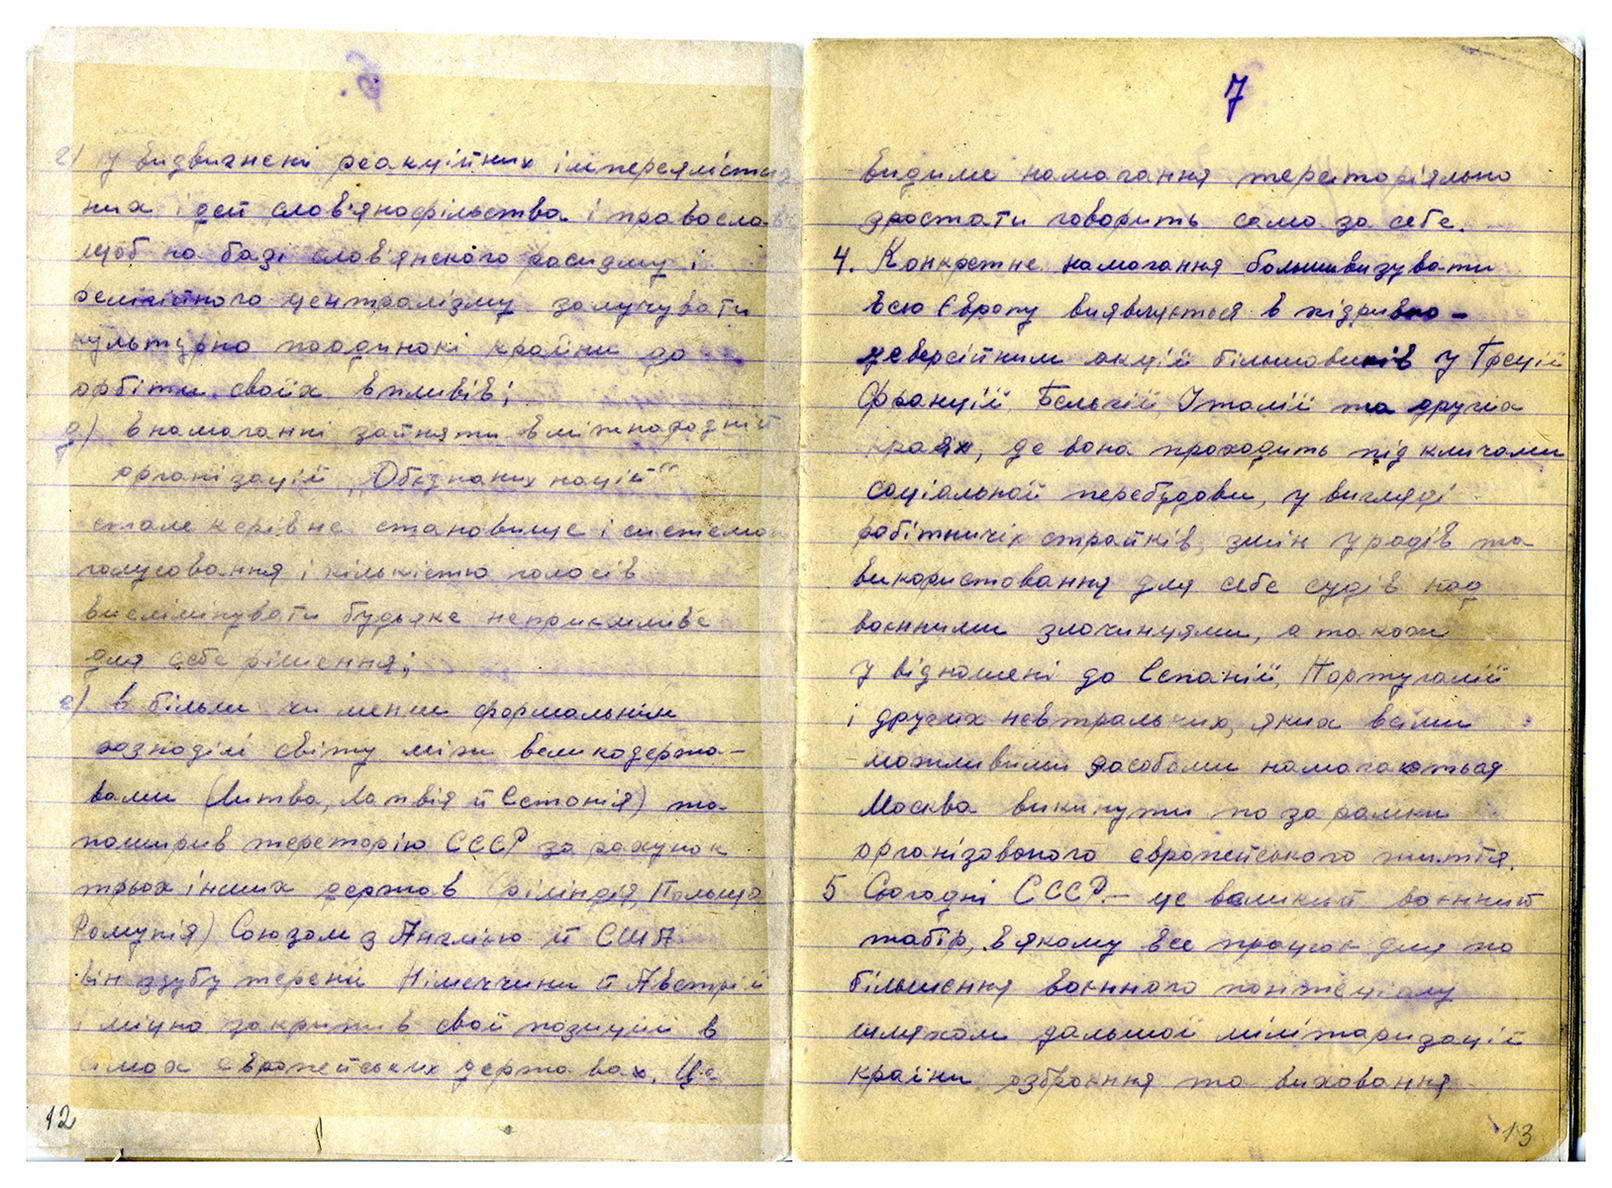 г) у видвигнені реакційних імпереялістич
них ідей слов'янофільства і правосла
щоб на базі слов'янского расизму і
релігійного централізму залучувати
культурно поодинокі країни до
орбіти своїх впливів;
д) в намаганні зайняти в міжнародній
організації „Обєднаних націй"
стале керівне становище і системою
голусовання і кількістю голосів
виелімінувати будьяке неприємливе
для себе рішення;
е) в більш чи менш формальнім
розподілі світу між великодержа-
вами (Литва, Латвія й Естонія) та
поширив тереторію СССР за рахунок
трьох інших держав (Фінлндія, Польща
Румунія) Союзом з Англією й США
він здубу терени Німеччини й Австрії
і міцно закріпив свої позиції в
сімох європейських державах. Це
12
7
видиме намагання тереторіяльно
зростати говорить само за себе.
4. Конкретне намагання большевизувати
всю Європу виявлується в підривно-
деверсійним акції більшовиків у Греції
Франції, Бельгії Італії та других
краях, де вона проходить під кличами
соціальної перебудови, у вигляді
робітничіх страйків, змін урядів та
використовання для себе судів над
воєнними злочинцями, а також
у відношені до Еспанії, Португалії
і других невтральних, яких всіми
можливими засобами намагаються
Москва викинути поза рамки
організованого європейського життя.
5 Сьогодні СССР – це великий воєнний
табір, в якому все працює для по
більшення воєнного понтеціалу
шляхом дальшої мілітаризації
країни, озброєння та виховання
13